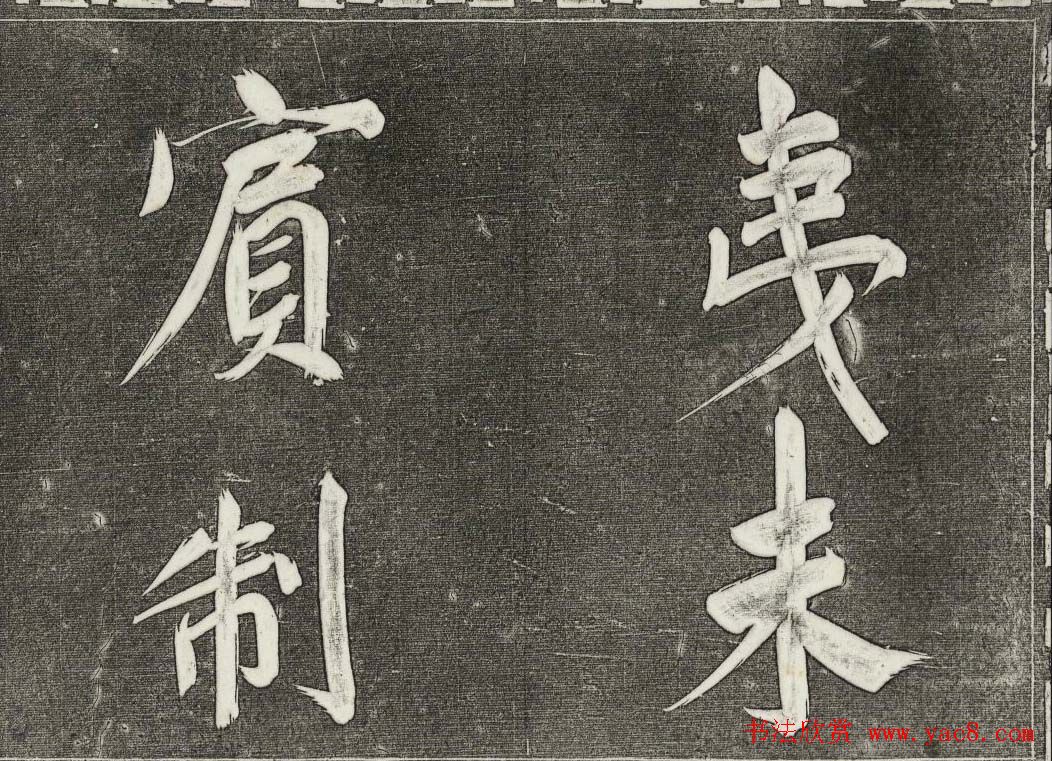 夷未
賓制
书法欣赏 www.yac8.com